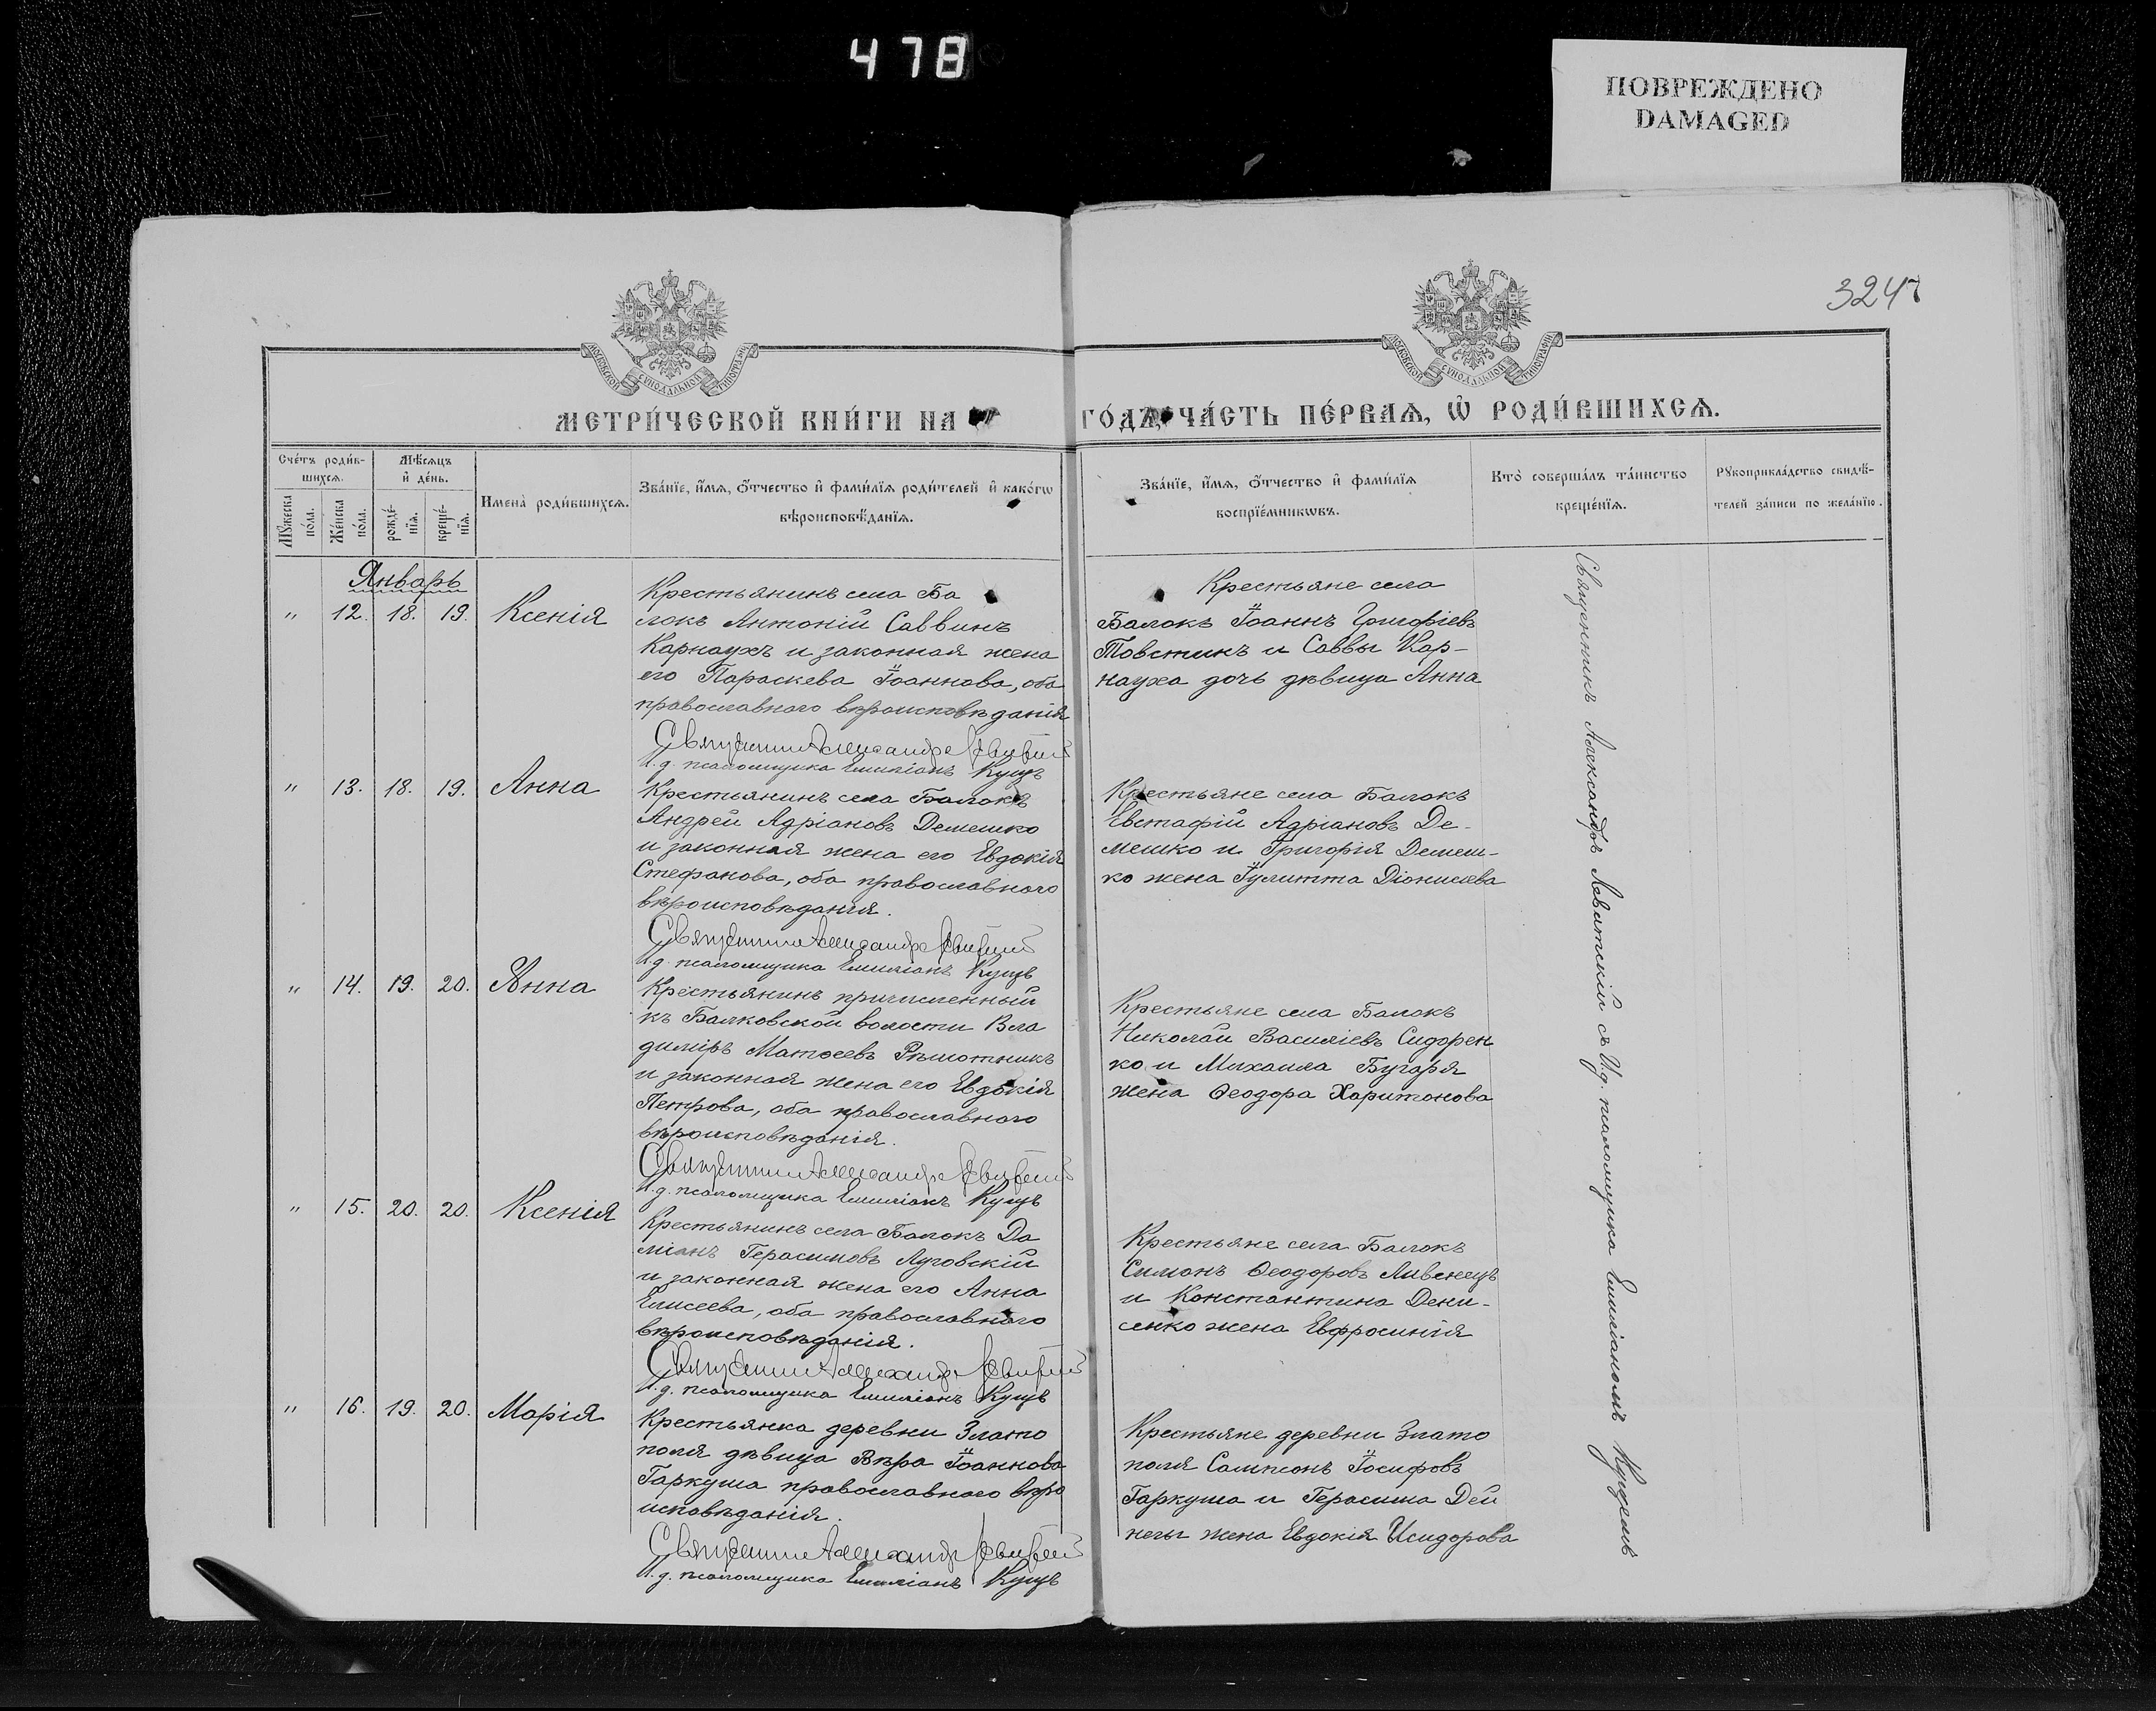 478
ПОВРЕЖДЕНО
DAMAGED
3247
МОСКОВСКОЙ СѴНОДАЛЬНОЙ ТИПОГРАФІИ
МОСКОВСКОЙ СѴНОДАЛЬНОЙ ТИПОГРАФІИ
МЕТРИ́ЧЕСКОЙ КНИ́ГИ НА
ГО́ДЪ, ЧА́СТЬ ПЕ́РВАѦ, Ѽ РОДИ́ВШИХСѦ.
Сче́тъ роди́в-
шихсѧ.
Мꙋ́жеска по́ла.
Же́нска по́ла.
Мѣ́сѧцъ
и҆ де́нь.
рожде́-нїѧ.
креще́-нїѧ.
Имена̀ роди́вшихсѧ.
Зва́нїе, и҆́мѧ, ѻ҆́тчество и҆ фами́лїѧ роди́телей и҆ како́гѡ
вѣроисповѣ́данїѧ.
Зва́нїе, и҆́мѧ, ѻ҆́тчество и҆ фами́лїѧ
воспрїе́мникѡвъ.
Кто̀ соверша́лъ та́инство
креще́нїѧ.
Рꙋкоприкла́дство свидѣ́-
телей за́писи по жела́нїю.
Январь
" 12. 18. 19. Ксенія
Крестьянинъ села Ба
локъ Антоній Саввинъ
Карнаухъ и законная жена
его Параскева Іоаннова, оба
православнаго вѣроисповѣданія
Священникъ Александръ Левитскій
И.д. псаломщика Емиліанъ Куцъ
Крестьяне села
Балокъ Іоаннъ Григоріевъ
Товстикъ и Саввы Кар-
науха дочь дѣвица Анна
" 13. 18. 19. Анна
Крестьянинъ села Балокъ
Андрей Адріановъ Демешко
и законная жена его Евдокія
Стефанова, оба православного
вѣроисповѣданія.
Священникъ Александръ Левитскій
И.д. псаломщика Емиліанъ Куцъ
Крестьяне села Балокъ
Евстафій Адріановъ Де-
мешко и Григорія Демеш-
ко жена Іулитта Діонисіева
" 14. 19. 20. Анна
Крестьянинъ причисленный
къ Балковской волости Вла
диміръ Матѳеевъ Рѣшотникъ
и законная жена его Евдокія
Петрова, оба православного
вѣроисповѣданія.
Священникъ Александръ Левитскій
И.д. псаломщика Емиліанъ Куцъ
Крестьяне села Балокъ
Николай Василіевъ Сидорен
ко и Михаила Бугаря
жена Ѳеодора Харитонова
" 15. 20. 20. Ксенія
Крестьянинъ села Балокъ Да
міанъ Герасимовъ Луговскій
и законная жена его Анна
Елисеева, оба православного
вѣроисповѣданія.
Священникъ Александръ Левитскій
И.д. псаломщика Емиліанъ Куцъ
Крестьяне села Балокъ
Симонъ Ѳеодоровъ Ливенецъ
и Константина Дени-
сенко жена Евфросинія
" 16. 19. 20. Марія
Крестьянка деревни Злато
поля дѣвица Вѣра Іоаннова
Гаркуша православного вѣро
исповѣданія.
Священникъ Александръ Левитскій
И.д. псаломщика Емиліанъ Куцъ
Крестьяне деревни Злато
поля Сампсонъ Іосифовъ
Гаркуша и Герасима Дей
неги жена Евдокія Исидорова
Священникъ Александръ Левитскій съ И.д. псаломщика Емиліаномъ